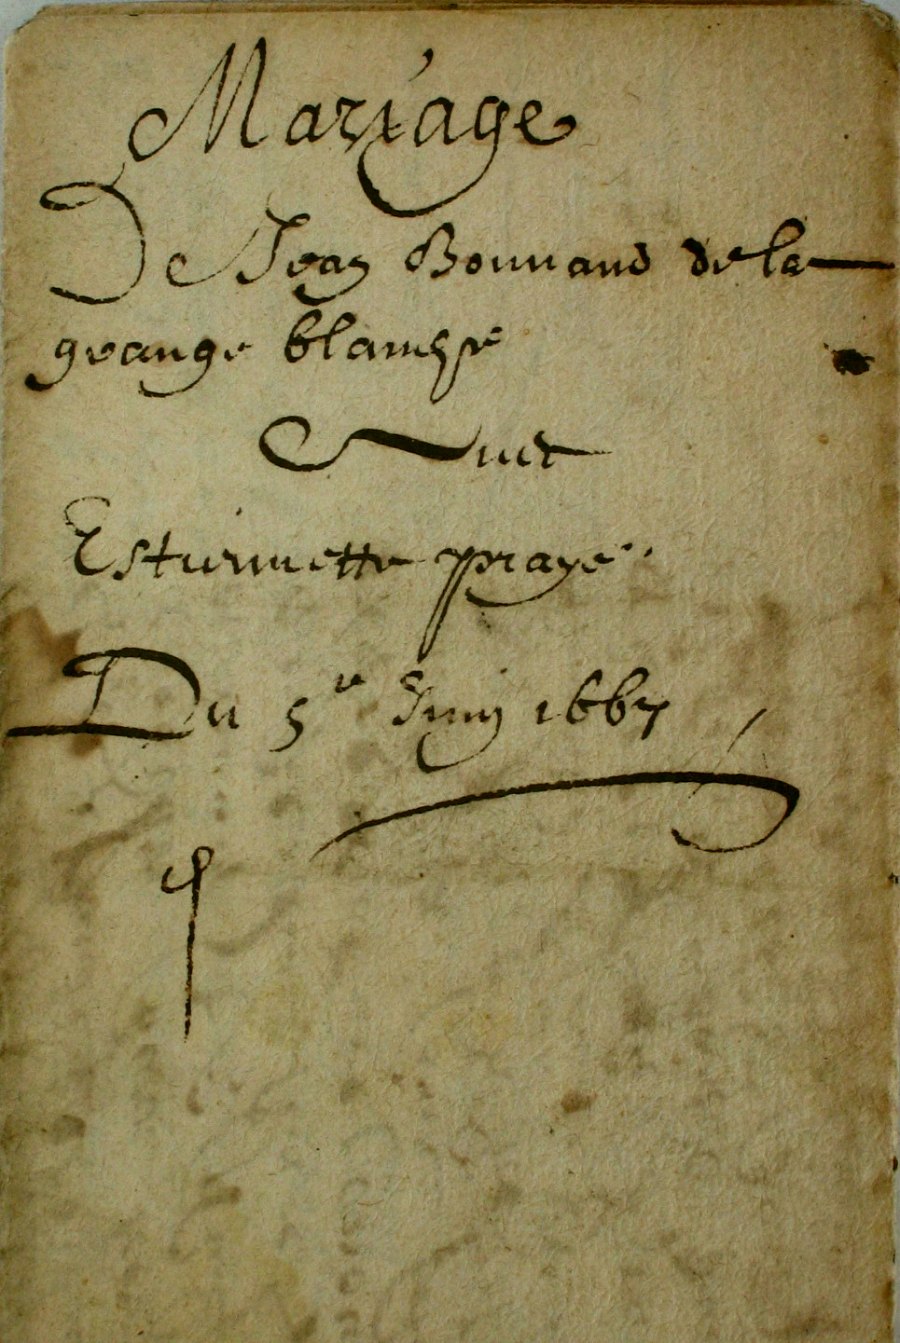 Mariage
De Jean Bonnand de la
grange blanche
Avec
Estiennette praye
Du 5e Juin 1667